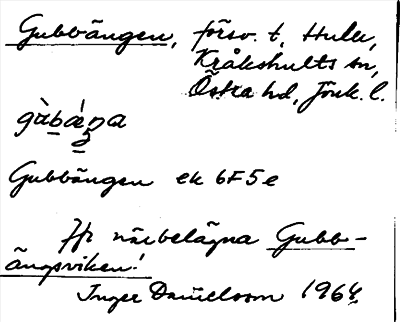 Gubbängen, försv. t. Hulu,
Kråkshults sn,
Östra hd, Jönk. l.
gùbæ̀ŋa
Gubbängen ek 6F5e
Jfr närbelägna Gubb-
ängsviken!
Inger Danielsson 1964